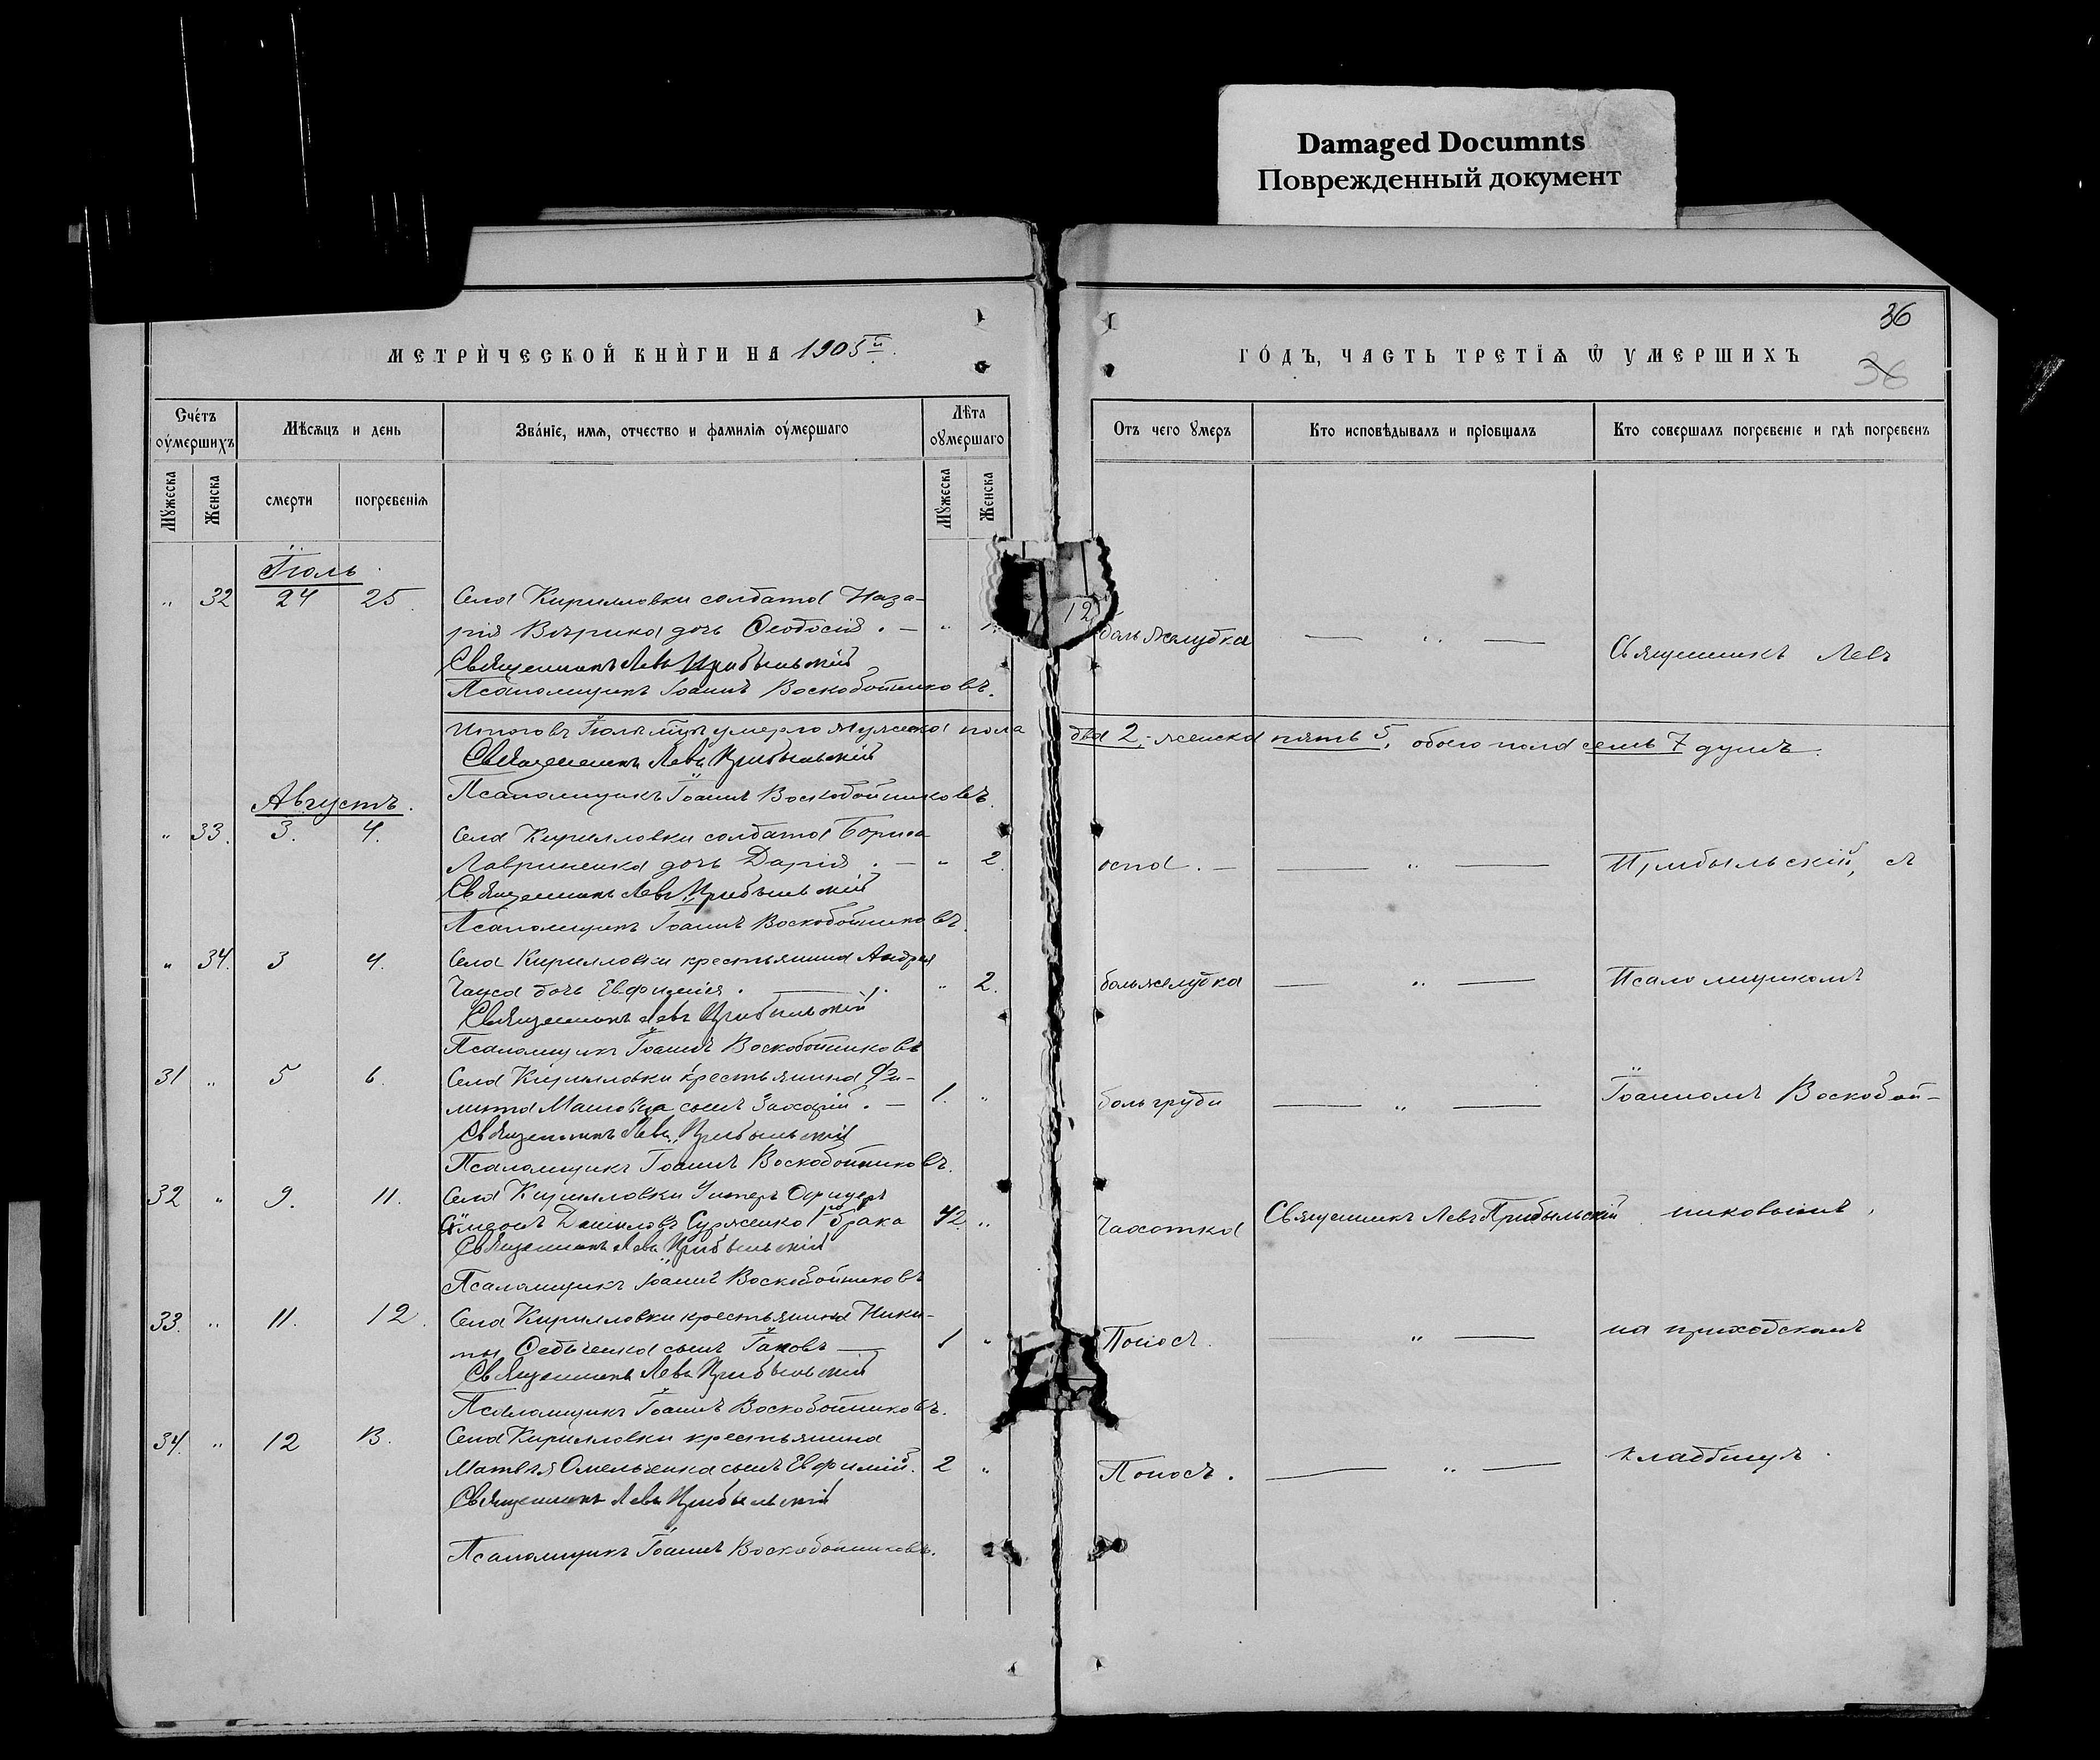 Damaged Documnts
Поврежденный документ
36
МЕТРИЧЕСКОЙ КНИГИ НА 1905й.
ГОДЪ, ЧАСТЬ ТРЕТІЯ Ѿ УМЕРШИХЪ
36
Счетъ оумершихъ
Мѣсяцъ и день
Званіе, имя, отчество и фамилія оумершаго
Лѣта оумершаго
Отъ чего умеръ
Кто исповѣдывалъ и пріобщалъ
Кто совершалъ погребеніе и гдѣ погребенъ
Мужеска
Женска
смерти
погребенія
Мужеска
Женска
Іюль.
" 32 24 25. Села Кирилловки солдата Наза-
рія дочь Ѳеодосія. — " 12 боль желудка — " —
Священникъ Левъ Прибыльскій
Священникъ Левъ
Псаломщикъ Іоаннъ Воскобойниковъ.
Итого въ Іюлѣ мцѣ умерло мужеска пола два 2, женска пять 5, обоего пола семь 7 душъ.
Священникъ Левъ Прибыльскій
Псаломщикъ Іоаннъ Воскобойниковъ.
Августъ.
" 33. 3. 4. Села Кирилловки солдата Бориса
Лавриненка дочь Дарія. — " 2. оспа. — — " — Прибыльскій, съ
Священникъ Левъ Прибыльскій
Псаломщикъ Іоаннъ Воскобойниковъ.
" 34. 3 4. Села Кирилловки крестьянина Андрея
Чауса дочь Евфимія. — " 2. боль желудка — " — Псаломщикомъ
Священникъ Левъ Прибыльскій
Псаломщикъ Іоаннъ Воскобойниковъ
31 " 5 6. Села Кирилловки крестьянина Фи-
липа сынъ Захарій. — 1. " боль груди — " — Іоанномъ Воскобой-
Священникъ Левъ Прибыльскій
Псаломщикъ Іоаннъ Воскобойниковъ.
32 " 9. 11. Села Кирилловки Унтеръ Офицеръ
Даниловъ 1го брака 42. " Чахотка Священникъ Левъ Прибыльскій никовымъ,
Священникъ Левъ Прибыльскій
Псаломщикъ Іоаннъ Воскобойниковъ
33. " 11. 12. Села Кирилловки крестьянина Ники-
ты сынъ Іаковъ — 1 " Поносъ. — " — на приходскомъ
Священникъ Левъ Прибыльскій
Псаломщикъ Іоаннъ Воскобойниковъ.
34. " 12 13. Села Кирилловки крестьянина
Матвѣя Омельченка сынъ Евфимій. 2 " Поносъ. — " — кладбищѣ.
Священникъ Левъ Прибыльскій
Псаломщикъ Іоаннъ Воскобойниковъ.